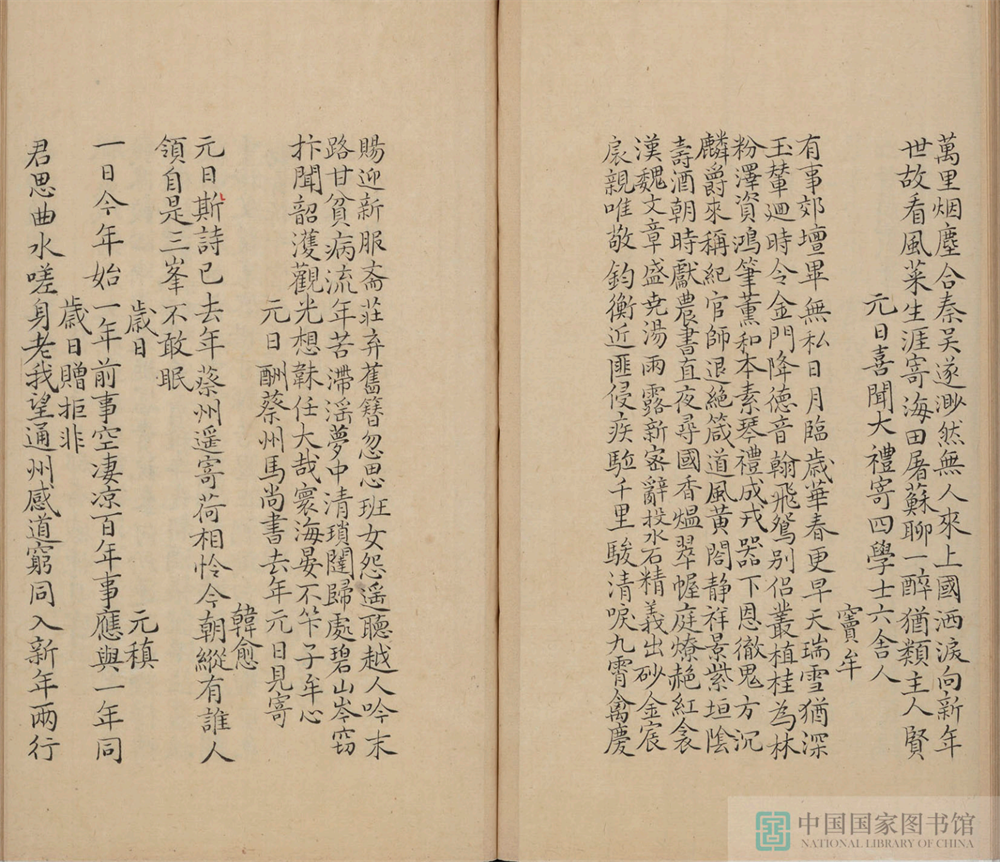 萬里烟塵合秦吴遂渺然無人來上國洒淚向新年
世故看風菜生涯寄海田屠蘇聊一醉猶類主人賢
元日喜聞大禮寄四學士六舍人
竇牟
有事郊壇畢無私日月臨歲華春更早天瑞雪猶深
玉輦迴時令金門降德音翰飛鴛别侶叢植桂為林
粉澤資鴻筆薰和本素琴禮成戎器下恩徹鬼方沉
麟爵來稱紀官師退絶箴道風黄閤静祥景紫垣陰
壽酒朝時獻農書直夜尋國香煴翠幄庭燎赩紅衾
漢魏文章盛尭湯雨露新密辭投水石精義出砂金宸
扆親唯敬鈞衡近匪侵疾駈千里駿清唳九霄禽慶
賜迎新服斋莊弃舊簮忽思班女怨遥聽越人吟末
路甘貧病流年苦滯滛夢中清瑣闥歸處碧山岑窃
抃聞韶濩觀光想韎任大哉寰海晏不筭子牟心
元日酬蔡州馬尚書去年元日見寄
韓愈
元日斯詩已去年蔡州遥寄荷相怜今朝縱有誰人
領自是三峯不敢眠
歲日
元稹
一日今年始一年前事空凄凉百年事應與一年同
歲日贈拒非
君思曲水嗟身老我望通州感道窮同入新年兩行
中国国家图书馆
NATIONAL LIBRARY OF CHINA